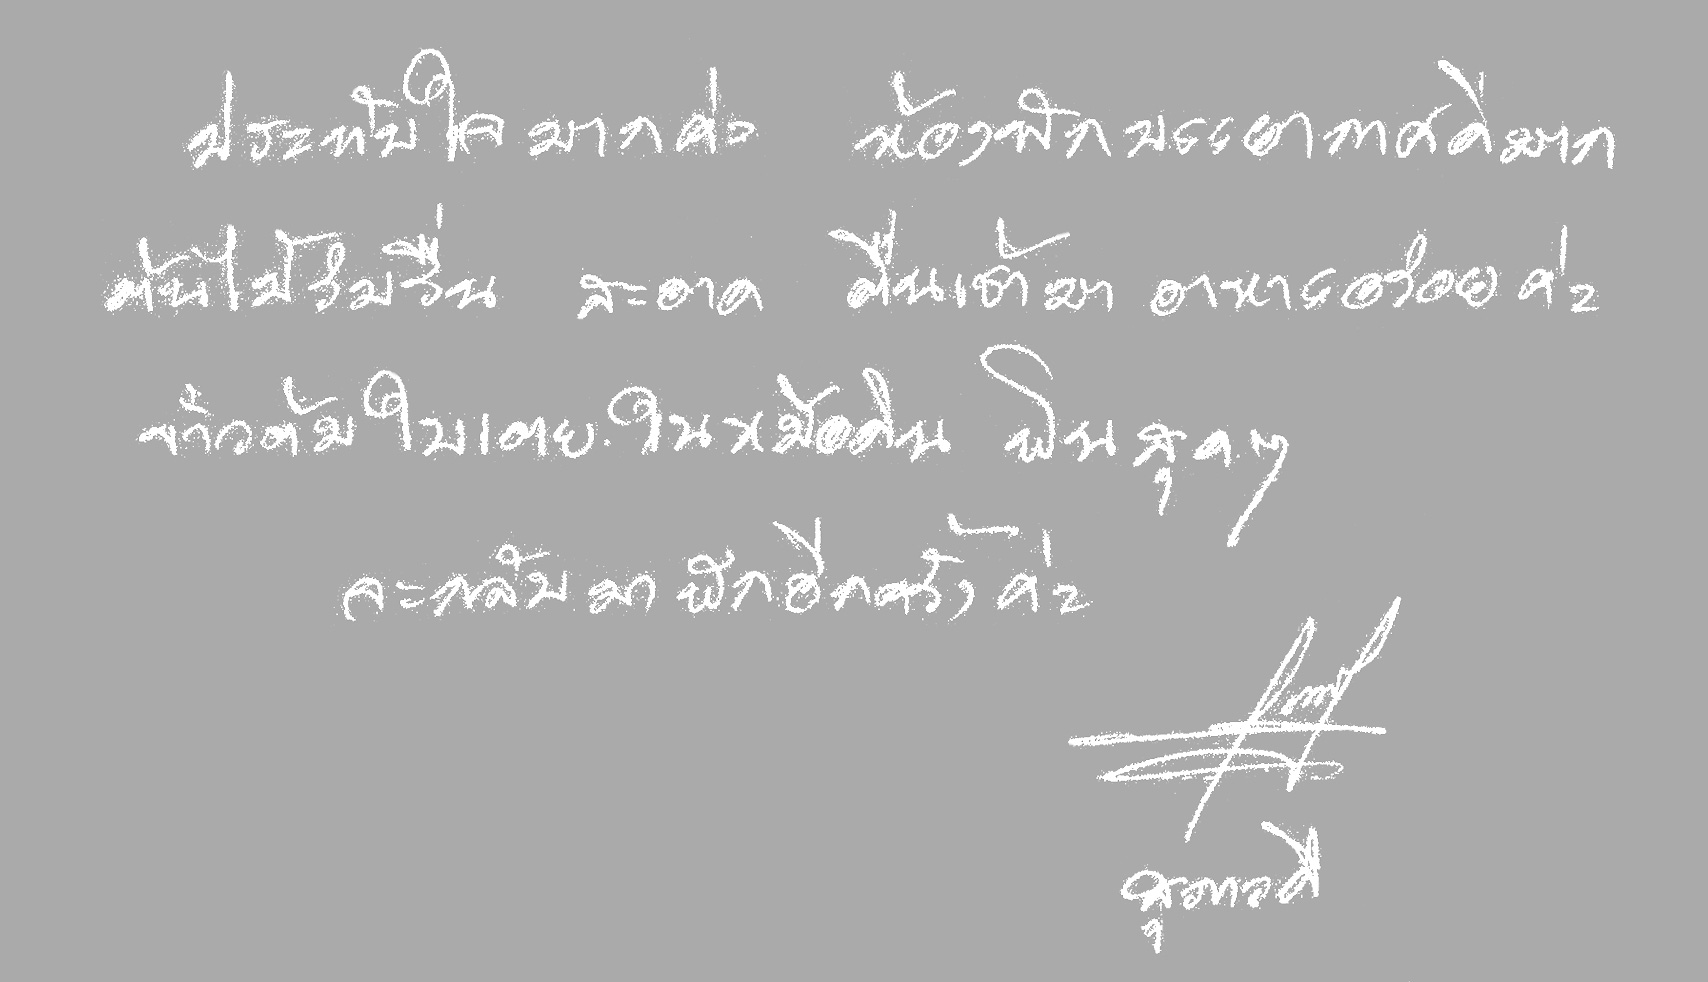 ประทับใจมากค่ะ ห้องพักบรรยากาศดีมาก
ต้นไม้ร่มรื่น สะอาด ตื่นเช้ามา อาหารอร่อย ค่ะ
ข้าวต้มใบเตย.ในหม้อดิน ฟินสุดๆ
จะกลับมาพักอีกครั้งค่ะ
สุภาวดี